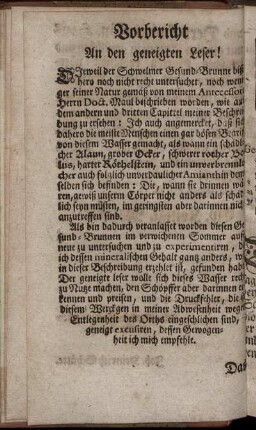 Vorbericht
An den geneigten Leser!
DJeweil der Schwelmer Gesund-Brunne biß
hero noch nicht recht untersuchet, noch weni
ger seiner Natur gemäß von meinem Antecessore
Herrn Doct. Maul beschrieben worden, wie aus
dem andern und dritten Capittel meiner Beschrei
bung zu ersehen: Ich auch angemercket, daß sich
dahero die meiste Menschen einen gar bösen Begriff
von diesem Wasser gemacht, als wann ein schäd
licher Alaun, grober Ocker, schwerer rother Bo
lus, harter Röthelstein, und ein unverbrenn
cher auch folglich unverdaulicher Amianthin dem
selben sich befinden: Die, wann sie drinnen wä
ren, gewiß unsern Cörper nicht anders als schäd
lich seyn müsten, im geringsten aber darinnen nicht
anzutreffen sind.
Als bin dadurch veranlasset worden diesen Ge
sund-Brunnen im verwichenen Sommer aufs
neue zu untersuchen und zu experimentiren,
ich dessen mineralischen Gehalt gantz anders, wie
in dieser Beschreibung erzehlet ist, gefunden hab
Der geneigte leser wolle sich dieses Wasser recht
zu Nutze machen, den Schöpffer aber darinnen er
kennen und preisen, und die Druckfehler, die
diesem Werckgen in meiner Abwesenheit wegen
Entlegenheit des Orths eingeschlichen sind,
geneigt excusiren, dessen Gewogen-
heit ich mich empfehle.
Das